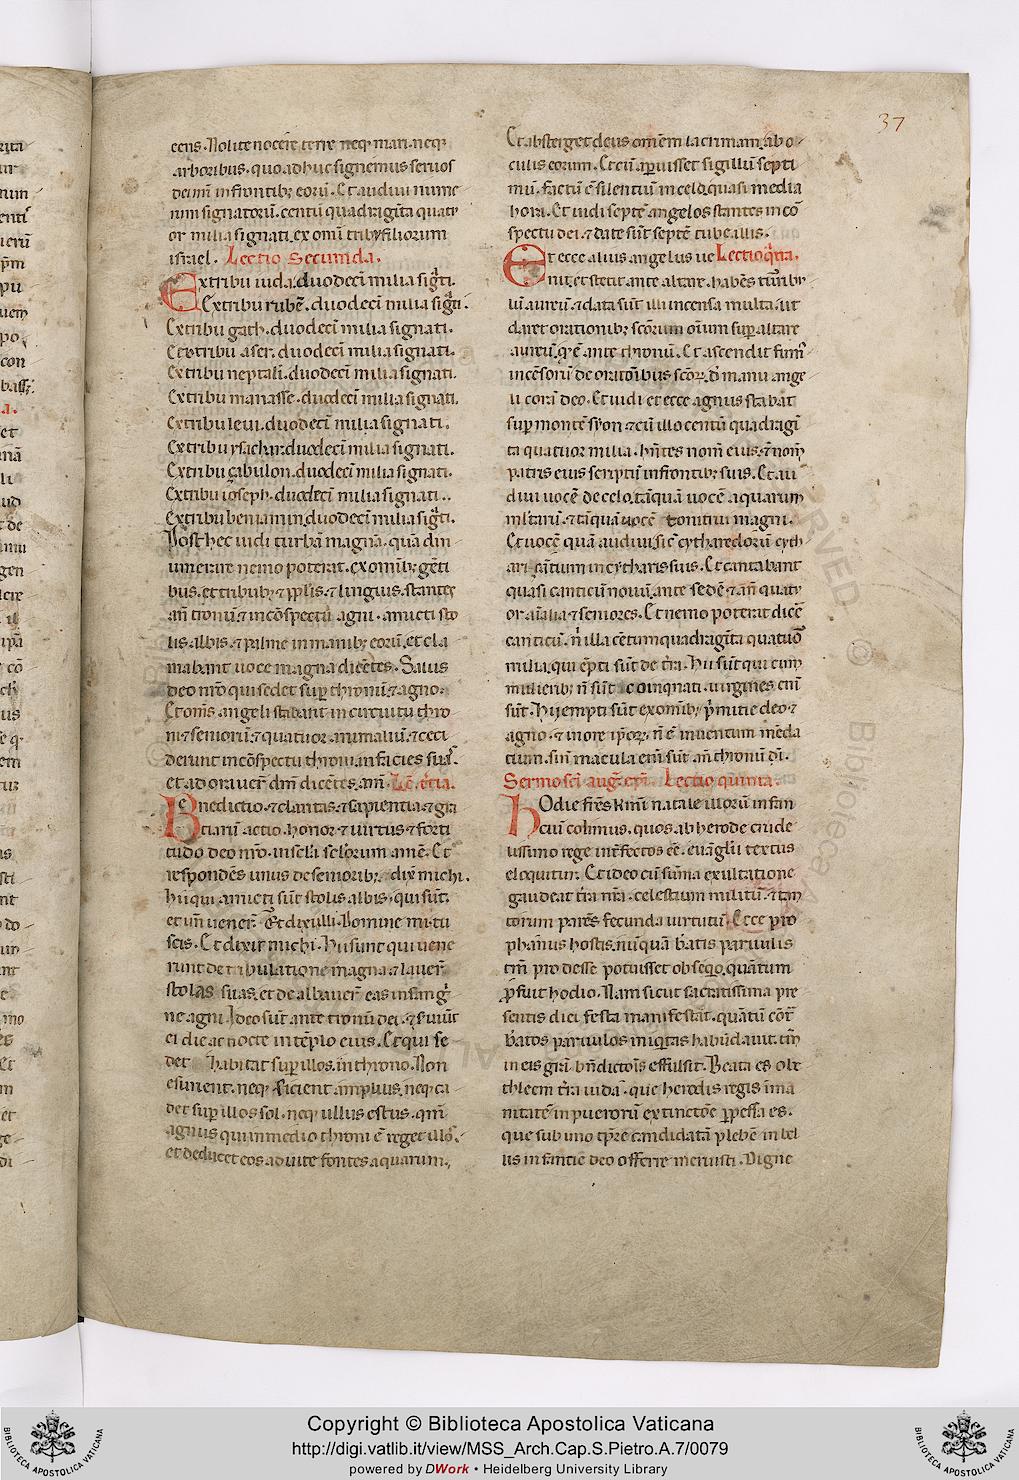 37
cens. Nolite nocere terre neq; mari. neq;
arboribus. quo adhuc signemus seruos
dei nr̄i in frontib; eorū. Et audiui nume
rum signatorū. centū quadragīta quatu
or milia signati. ex om̄i tribu filiorum
israel. Lectio Secunda.
Extribu iuda. duodecī milia sig̃ti.
Extribu rubē. duodecī milia sig̃ti.
Extribu gath. duodecī milia signati.
Extribu aser. duodecī milia signati.
Extribu neptali. duodecī milia signati.
Extribu manasse. duodecī milia signati.
Extribu leui. duodecī milia signati.
Extribu ysachar. duodecī milia signati.
Extribu zabulon. duodecī milia signati.
Extribu ioseph. duodecī milia signati..
Extribu beniamin. duodecī milia sig̃ti.
Post hec uidi turbā magnā. quā din
umerare nemo poterat. ex omīb; gēti
bus. et tribub; ⁊ pp̄lis. ⁊ linguis. stantes
an̄ tronū. ⁊ incōspectu agni. amicti sto
lis albis. ⁊ palme in manib; eorū. et cla
mabant uoce magna dicētes. Salus
deo nr̄o qui sedet sup̄ thronū. ⁊ agno.
Et om̄s angeli stabant in circuitu thro
ni. ⁊ seniorū. ⁊ quatuor animaliū. ⁊ ceci
derunt incōspectu throni. in facies suas.
et adorauer̄ dm̄ dicētes. am̄. Lc̄. t̄cia.
Benedictio. ⁊ claritas. ⁊ sapientia. ⁊ gra
tiarū actio. honor. ⁊ uirtus ⁊ forti
tudo deo nr̄o. in scl̄a sclorum amē. Et
respondēs unus de seniorib;. dix̄ michi.
Hii qui amicti sūt stolis albis. qui sūt.
et un̄ uener̄. Et dixi illi. Domine mi. tu
scis. Et dixit michi. Hii sunt qui uene
runt de tribulatione magna. ⁊ lauer̄
stolas suas. et dealbauer̄ eas in sangī
ne agni. Ideo sūt ante tronū dei. ⁊ s̄uiūt
ei die ac nocte in tēplo eius. Et qui se
det habitat sup̄ illos. in throno. Non
esurient. neq; sicient amplius. neq; ca
det sup̄ illos sol. neq; ullus estus. qm̄
agnus qui in medio throni ē reget illos.
et deducet eos ad uite fontes aquarum.,
Et absterget deus omēm lacrimam. ab o
culis eorum. Et cū ap̄uisset sigillū septi
mū. factū ē silentiū in celo. quasi media
hora. Et uidi septē angelos stantes in cō
spectu dei. ⁊ date sūt septē tube illis.
Et ecce alius angelus ue Lectio q̄rta.
nit. et stetit ante altare. habēs turrib;
ulū aureū. ⁊ data sūt illi incensa multa. ut
daret orationib; scōrum oīum sup̄ altare
aureū. q̄ ē ante thronū. Et ascendit fum̄
incēsorū de orationibus scōr;. d̄ manu ange
li corā deo. Et uidi et ecce agnus stabat
sup̄ montē syon. ⁊ cū illo centū quadragī
ta quatuor milia. hn̄tes nom̄ eius. ⁊ nom̄
patris eius scriptū in frontib; suis. Et au
diui uocē de celo. tāquā uocē aquarum
multarū. ⁊ tāquā uocē tonitrui magni.
Et uocē quā audiui. sic̄ cytharedorū. cyth
arizātium in cytharis suis. Et cantabant
quasi canticū nouū. ante sedē ⁊ an̄ quatu
or aīalia. ⁊ seniores. Et nemo poterat dicē
canticū. n̄ illa cētum quadragīta quatuor
milia. qui ēpti sūt de t̄ra. Hii sūt qui cum
mulierib; n̄ sūt coinquati. uirgines enī
sūt. Hii empti sūt ex omīb; p̄mitie deo. ⁊
agno. ⁊ in ore ip̄or; n̄ ē inuentum mēda
tium. sin̄ macula enī sūt an̄ thronū dī.
Sermo sc̄i aug̃. ep̄i. Lectio quinta.
Hodie fr̄es km̄i natale illorū infan
tiū colimus. quos ab herode crude
lissimo rege int̄fectos eē. euāglii textus
eloquitur. Et ideo cū sūma exultatione
gaudeat t̄ra nr̄a. celestium militū. ⁊ tan
torum parēs fecunda uirtutū. Ecce pro
phanus hostis. nūquā b̄atis paruulis
tm̄ prodesse potuisset obseq̄o. quātum
p̄fuit hodio. Nam sicut sacratissima pre
sentis diei festa manifestāt. quātū cōtr̄
b̄atos paruulos iniq̄tas habūdauit. tm̄
in eis gra. bn̄dictōis effulsit. Beata es o be
thleem t̄ra iuda. que herodis regis īma
nitatē in puerorū extinctōe p̄pessa es.
que sub uno tp̄re candidatā plebē inbel
lis infantie deo offerre meruisti. Digne
Copyright © Biblioteca Apostolica Vaticana
http://digi.vatlib.it/view/MSS_Arch.Cap.S.Pietro.A.7/0079
powered by DWork • Heidelberg University Library
BIBLIOTECA APOSTOLICA VATICANA
BIBLIOTECA APOSTOLICA VATICANA